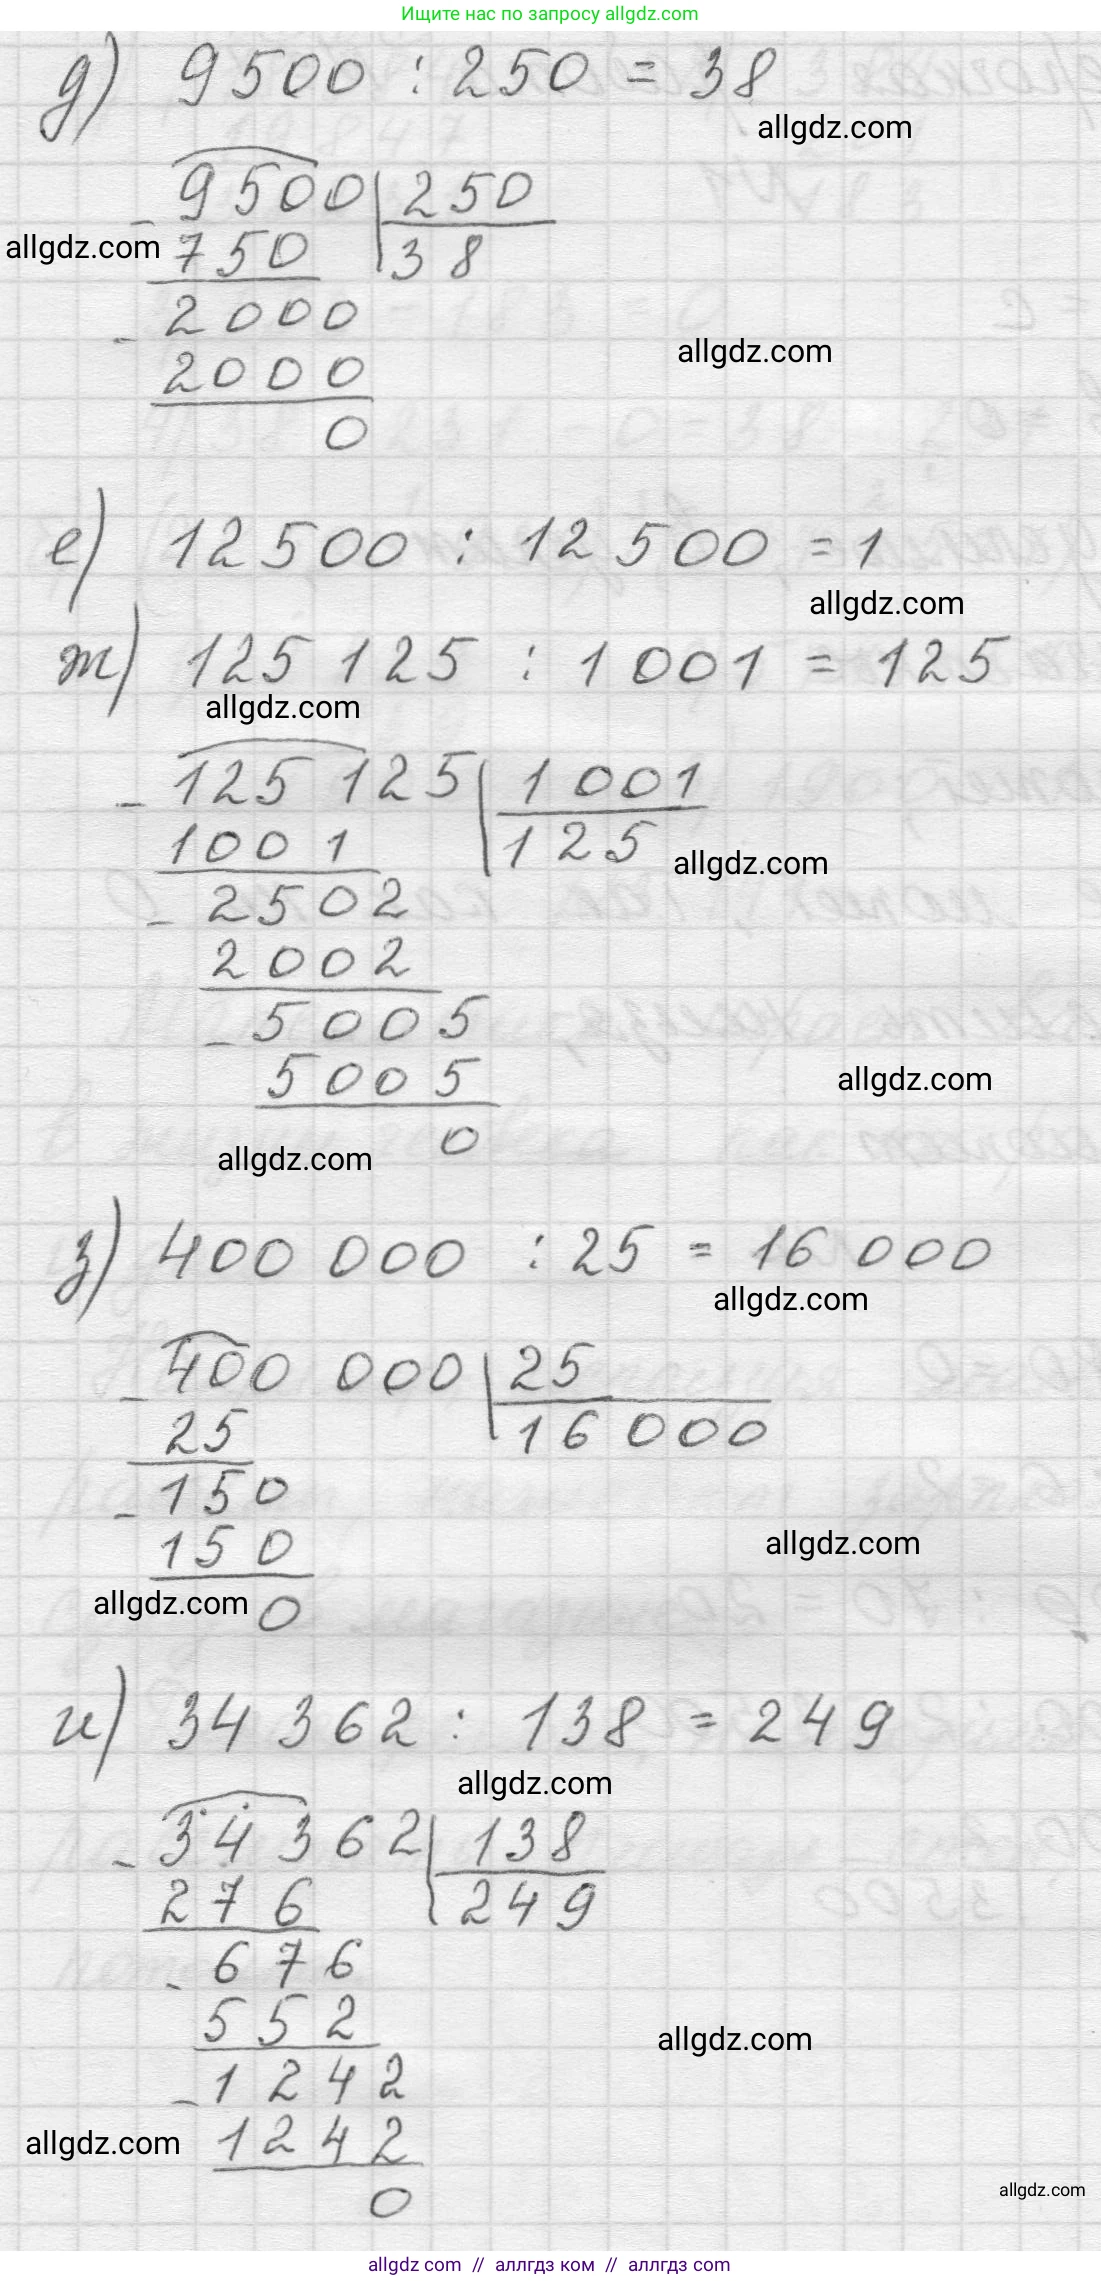 Ищите нас по запросу allgdz.com
д) 9500 : 250 = 38
allgdz.com
9500 250
- 750 38
allgdz.com
- 2000
allgdz.com
2000
0
е) 12500 : 12500 = 1
allgdz.com
ж) 125 125 : 1001 = 125
allgdz.com
- 125 125 1001
1001 125
allgdz.com
- 2502
2002
- 5005
5005
allgdz.com
0
allgdz.com
з) 400 000 : 25 = 16 000
allgdz.com
- 400 000 25
25 16 000
- 150
150
allgdz.com
allgdz.com
0
и) 34 362 : 138 = 249
allgdz.com
- 34 362 138
276 249
- 676
552
allgdz.com
- 1242
1242
allgdz.com
allgdz.com
0
allgdz com // аллгдз ком // аллгдз com